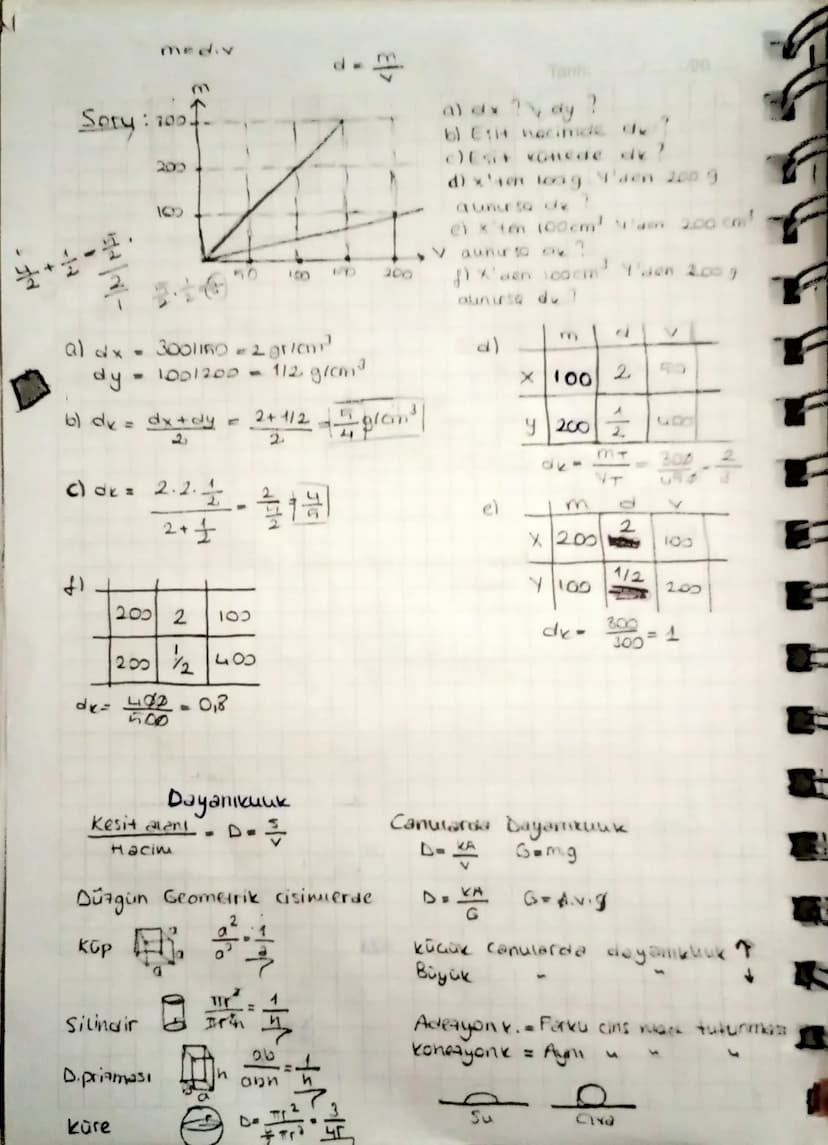 m=d.v
d = m/v
Soru:
m
300
200
100
50 100 150 200
V
a) dx ? V dy ?
b) Eşit hacimde dk ?
c) Eşit kütlede dk ?
d) x'ten 100g Y'den 200 g
alınırsa dk ?
e) x'ten 100cm³ Y'den 200 cm³
alınırsa dk ?
f) X'den 100cm³ Y'den 200 g
alınırsa dk ?
a) dx = 300/150 = 2 gr/cm³
dy = 100/200 = 1/2 g/cm³
b) dk = dx+dy/2 = 2+1/2/2 = 5/4 g/cm³
c) dk = 2.2.1/2 / 2+1/2 = 2 / 5/2 = 4/5
d)
m d v
X 100 2 50
y 200 1/2 400
dk = mT/VT = 300/450 = 2/3
e)
m d v
X 200 2 100
Y 100 1/2 200
dk = 300/300 = 1
f)
200 2 100
200 1/2 400
dk = 400/500 = 0,8
Dayanıklılık
Kesit alanı/Hacim = D = S/V
Düzgün Geometrik cisimlerde
Küp a a a a²/a³ = 1/a
Silindir πr²/πr²h = 1/h
D.prizması h a ab/abh = 1/h
Küre r D= πr²/ 4/3 πr³ = 3/4r
Canlılarda Dayanıklılık
D= kA/V G=mg
D= kA/G G= d.v.g
Küçük canlılarda dayanıklılık ↑
Büyük " " ↓
Adezyon k. = Farklı cins madde tutunması
Kohezyon k = Aynı " " "
Su Civa